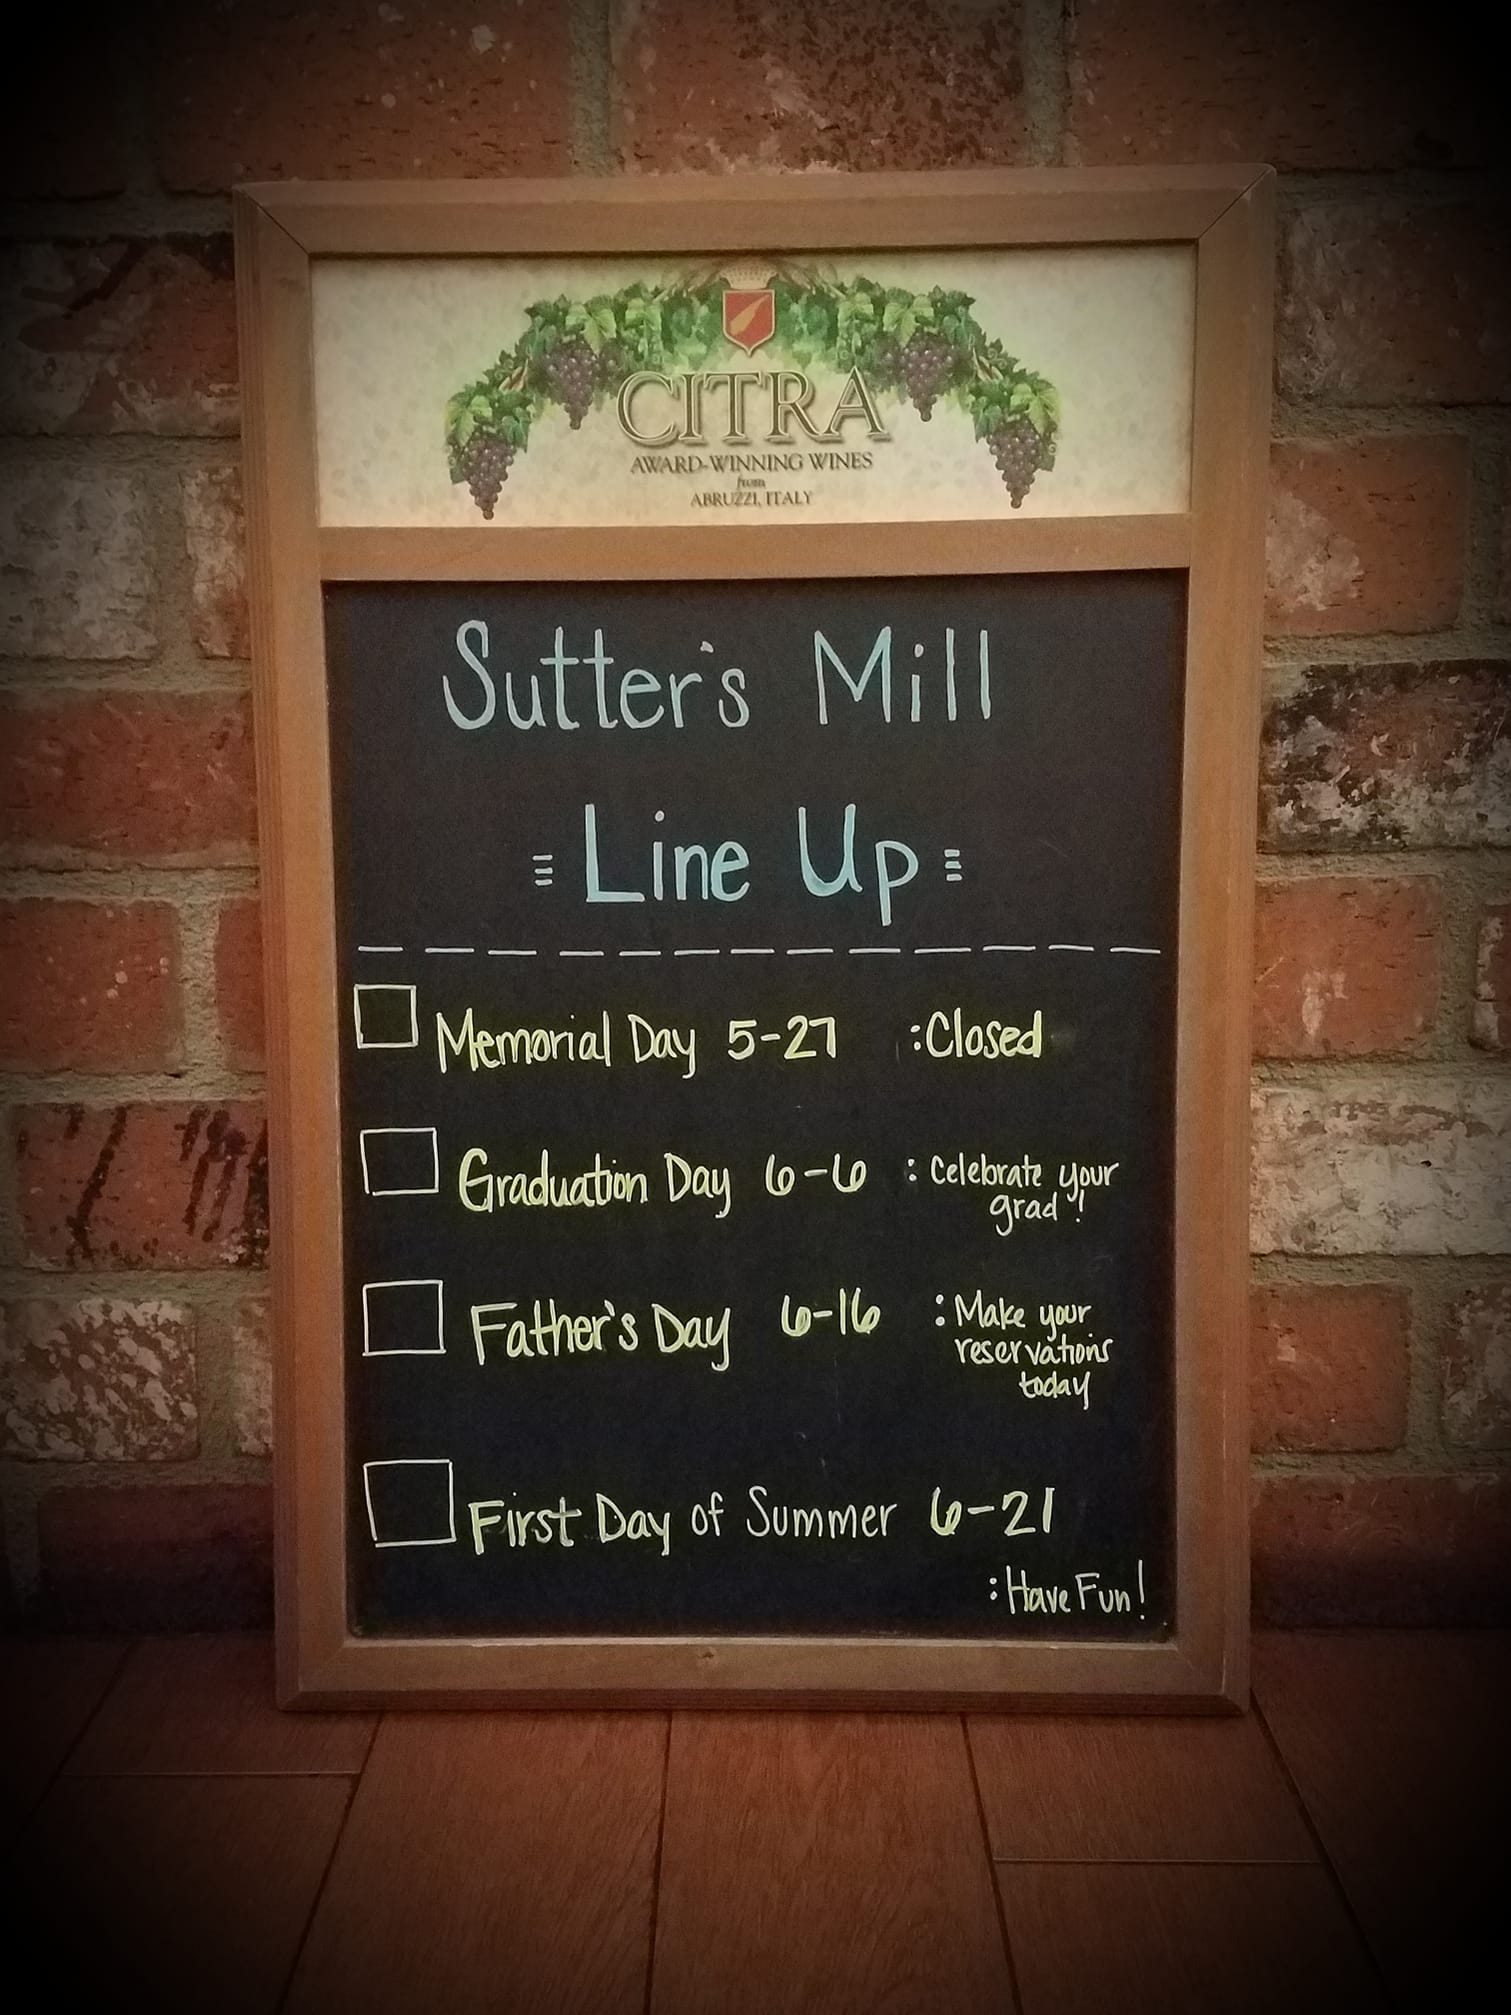 CITRA
AWARD-WINNING WINES
from
ABRUZZI, ITALY
Sutter's Mill
Line Up
Memorial Day 5-27 :Closed
Graduation Day 6-6 : Celebrate your
grad!
Father's Day 6-16 : Make your
reservations
today
First Day of Summer 6-21
: Have Fun!